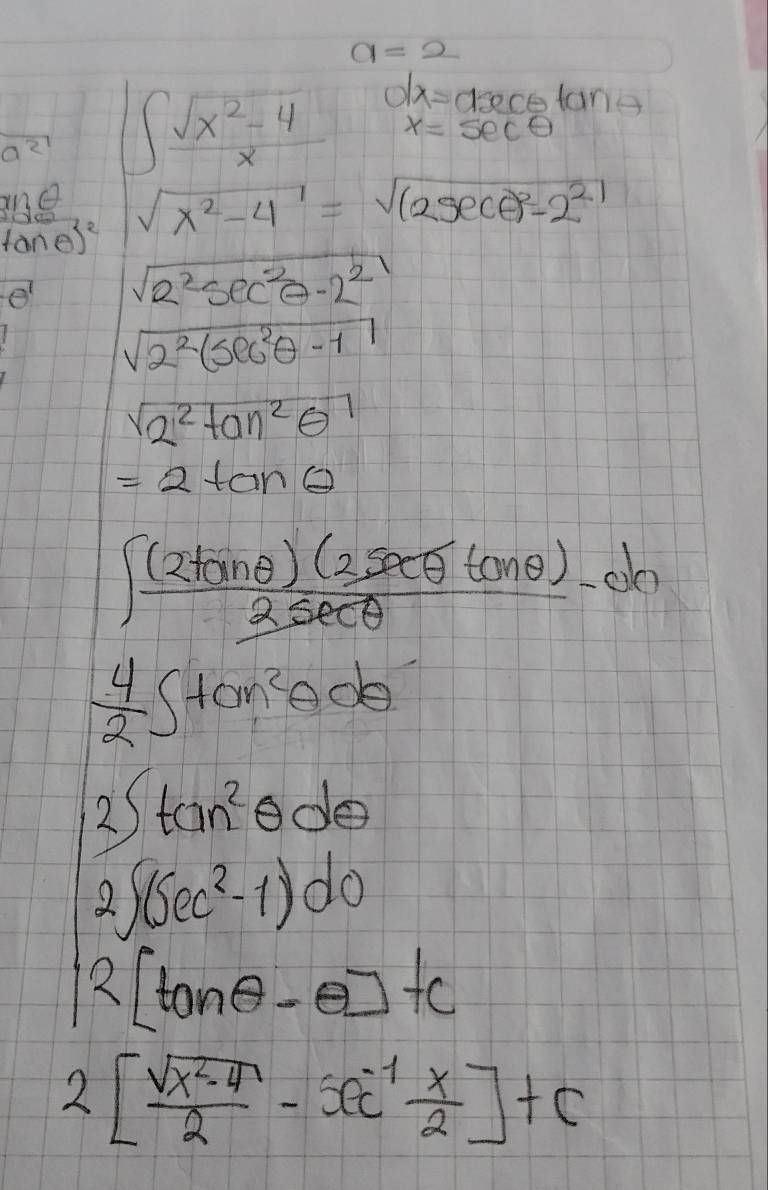 a = 2
∫ √(x² - 4) / x
dx = a secθ tanθ
x = secθ
√(x² - 4) = √((2 secθ)² - 2²)
√(2² sec²θ - 2²)
√(2² (sec²θ - 1
√(2² tan²θ)
= 2 tan θ
∫ (2 tanθ) (2 secθ tanθ) / 2 secθ - dθ
4/2 ∫ tan²θ dθ
2 ∫ tan²θ dθ
2 ∫ (sec² - 1) dθ
2 [tanθ - θ] + c
2 [√(x² - 4) / 2 - sec⁻¹ x/2] + c